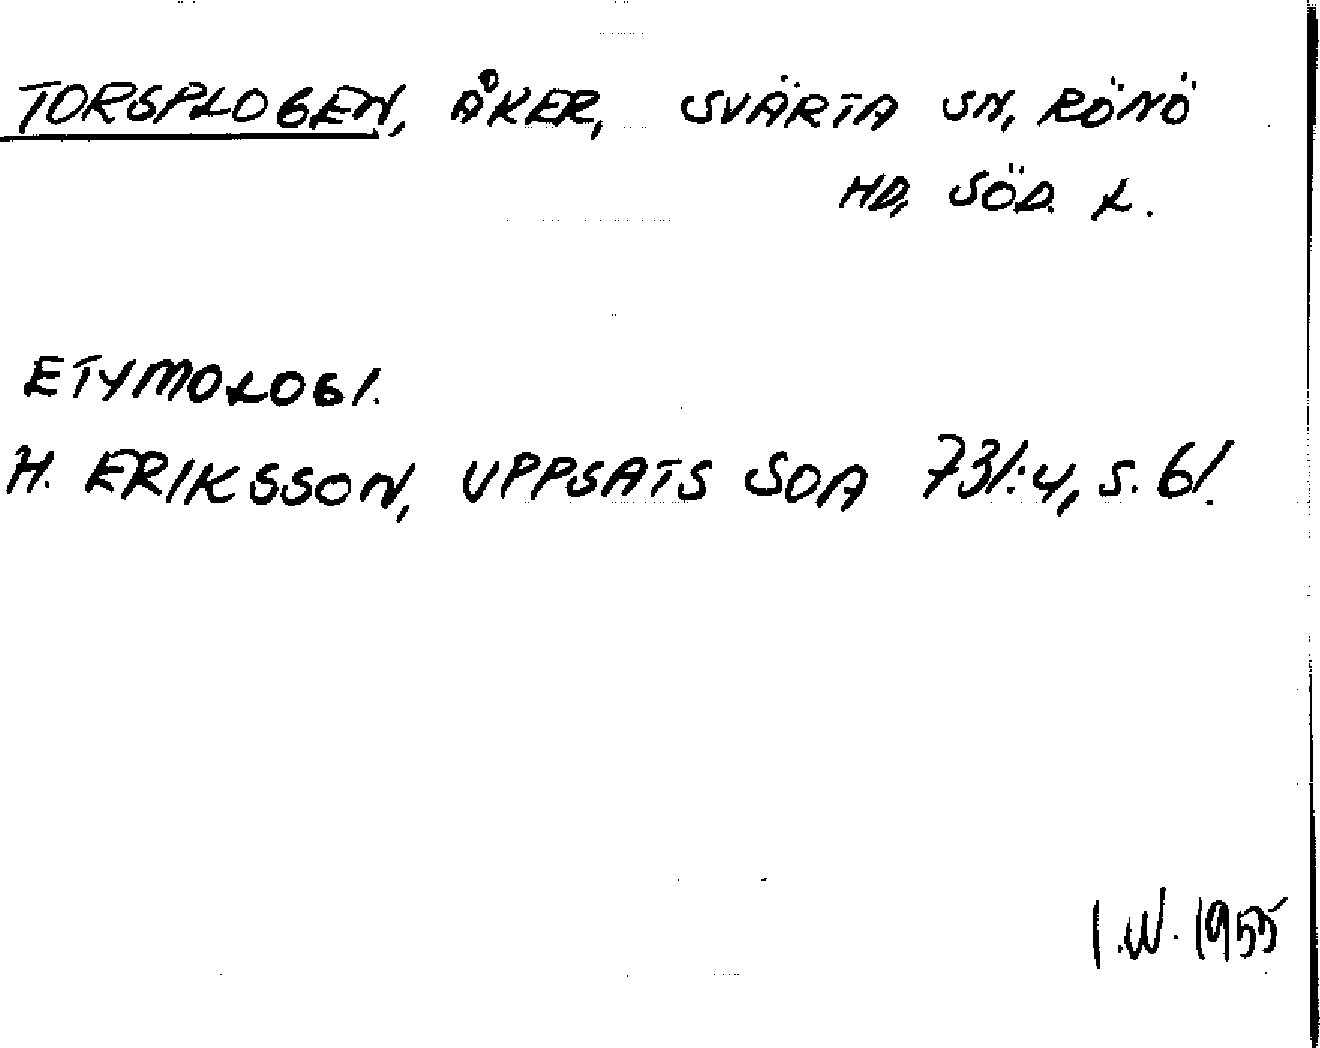 TORSPLOGEN, ÅKER, SVÄRTA SN, RÖNÖ
HD, SÖD. L.
ETYMOLOGI.
H. ERIKSSON, UPPSATS SOA 731:4, S. 61.
I.W. 1955